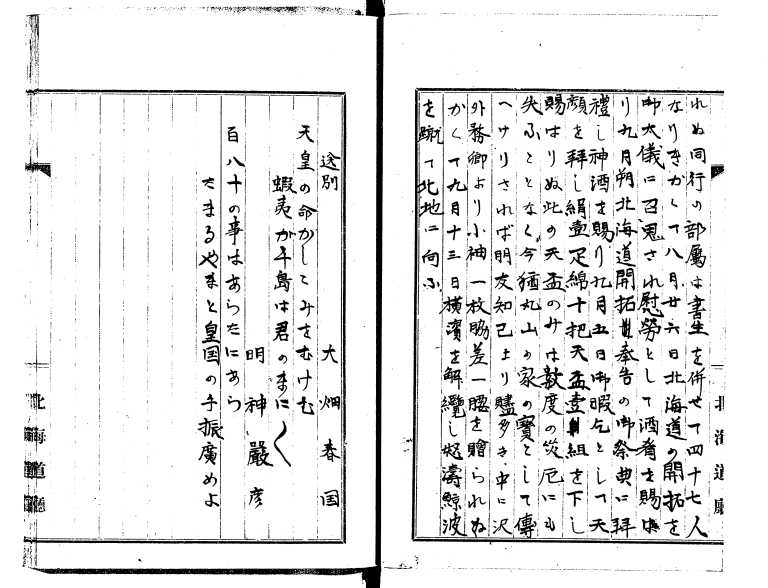 れぬ同行の部属は書生を併せて四十七人
なりきかくて八月廿六日北海道の開拓を
御大儀に召され慰労として酒肴を賜は
り九月朔北海道開拓奉告の御祭典に拜
禮し神酒を賜り九月五日御暇乞として天
顔を拜し絹壹疋綿十把天盃壹組を下し
賜はりぬ此の天盃のみは数度の災厄にも
失ふことなく今猶丸山の家の寶として傳
へけりされば明友知己より贐多き中に沢
外務卿より小袖一枚脇差一腰を贈られぬ
かくて九月十三日横濱を解纜し怒濤鯨波
を蹴て北地に向ふ
北海道廳
途別 大畑春国
天皇の命かしこみことむけむ
蝦夷が千島は君のまに〱
明神嚴彦
百八十の事はあらたにあら
たまるやまと皇国の手振廣めよ
北海道廳